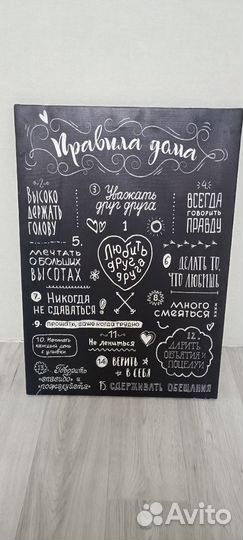 Правила дома
2.
Высоко
держать
голову
3 Уважать
друг друга
4.
Всегда
говорить
правду
1
Любить
друг
друга
5.
мечтать
о больших
высотах
6
Делать то,
что любишь
7. Никогда
не сдаваться!
8.
много
смеяться
9. прощать, даже когда трудно
10. Начинать
каждый день
с улыбки
11
Не лениться
12.
Дарить
объятия и
поцелуи
13.
Говорить
"спасибо" и
"пожалуйста"
14 Верить
в себя
15. Сдерживать обещания
Avito